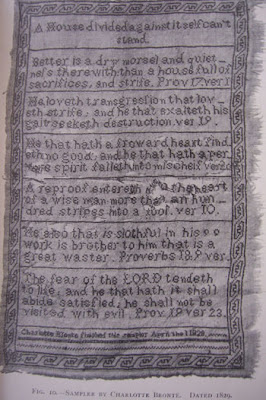 A House divided against itself can't
stand.
Better is a dry morsel and quiet
ness therewith than a house full of
sacrifices, and strife. Prov 17 ver 1
He loveth transgression that lov
eth strife, and he that exalteth his
gait seeketh destruction. ver 19.
He that hath a froward heart find
eth no good, and he that hath a per
verse spirit falleth into mischief ver 20
A reproof entereth the heart
of a wise man more than an hun
dred stripes into a fool. ver 10.
He also that is slothful in his
work is brother to him that is a
great waster. Proverbs 18.9 ver.
The fear of the LORD tendeth
to life, and he that hath it shall
abide satisfied, he shall not be
visited with evil. Prov. 19 ver 23.
Charlotte finished this sampler April the 1 1829.
FIG. 10.—SAMPLER BY CHARLOTTE BRONTË. DATED 1829.